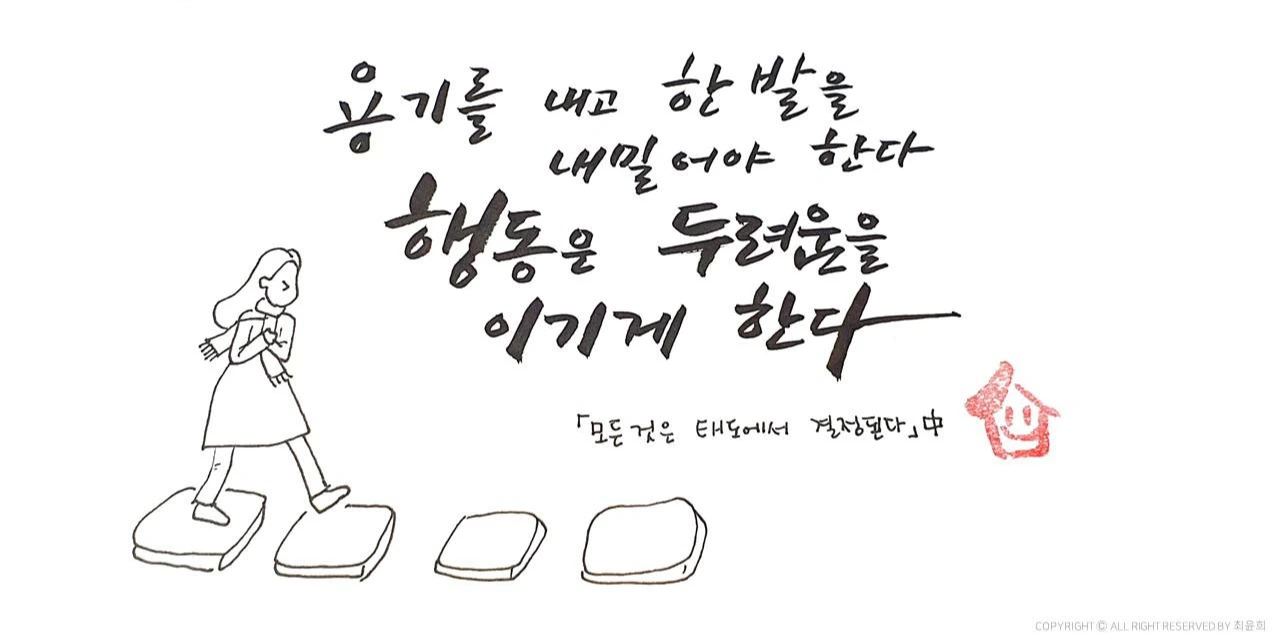 용기를 내고 한 발을
내밀어야 한다
행동은 두려움을
이기게 한다
「모든 것은 태도에서 결정된다」中
COPYRIGHT © ALL RIGHT RESERVED BY 최윤희